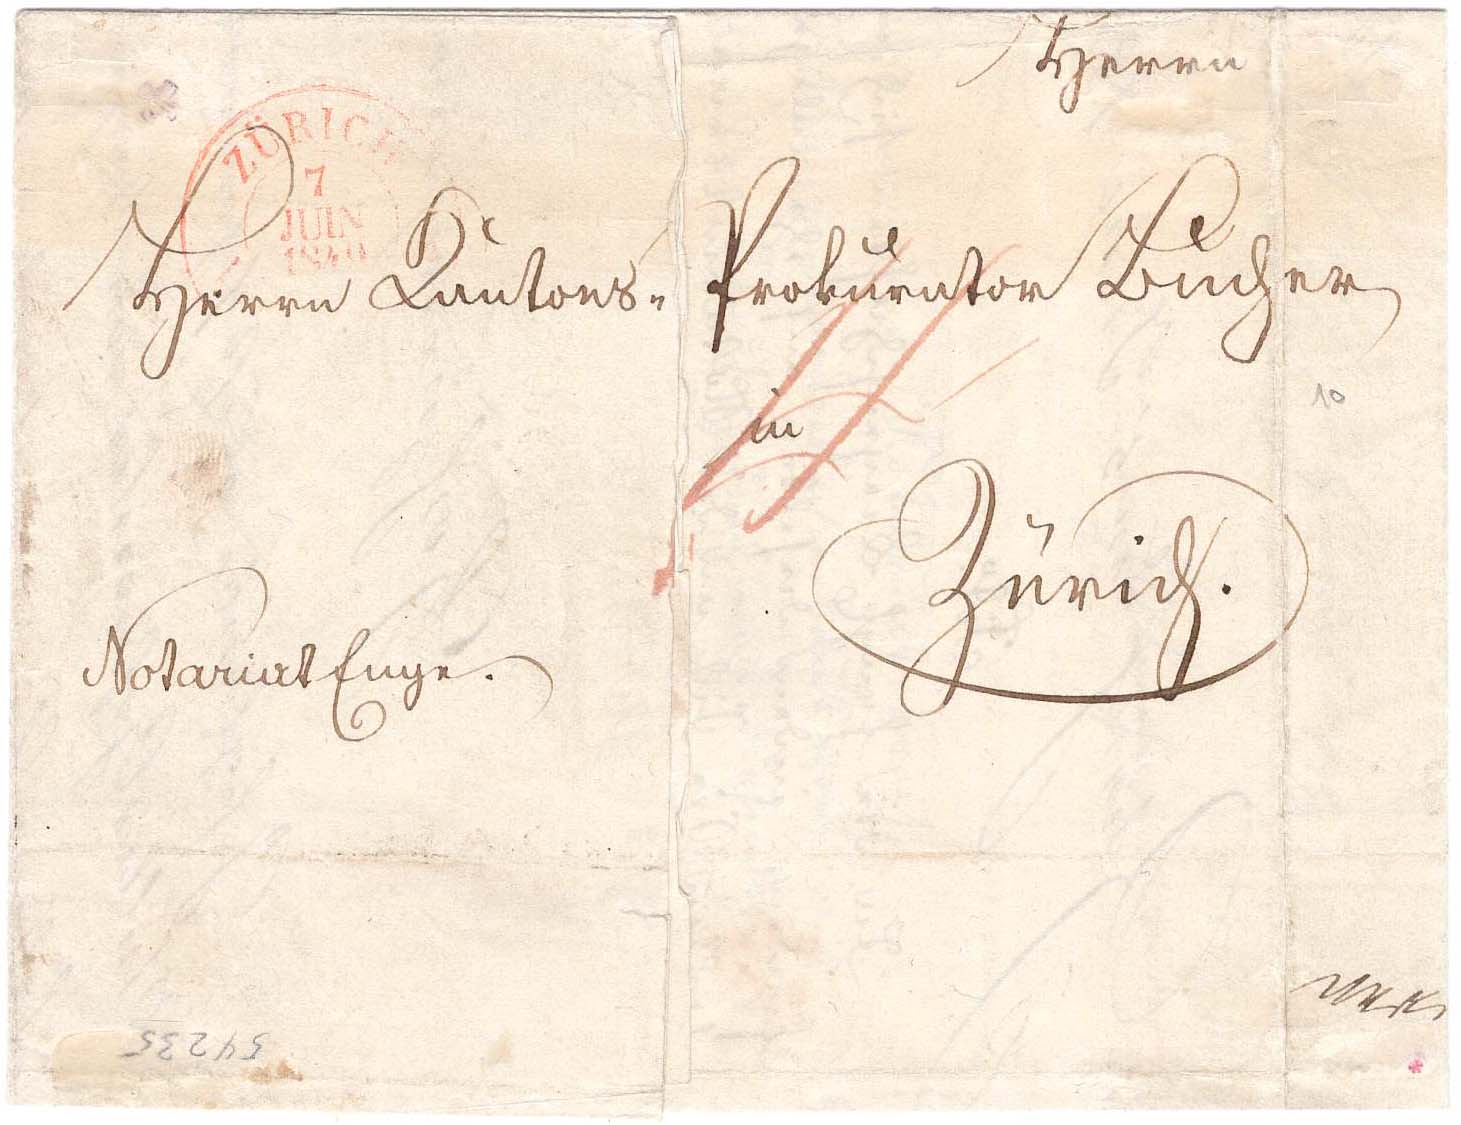 Herrn
ZÜRICH
7
JUIN
1840
Herrn Kantons= Prokurator Bucher
in
Zürich.
Notariat Enge.
10
54235